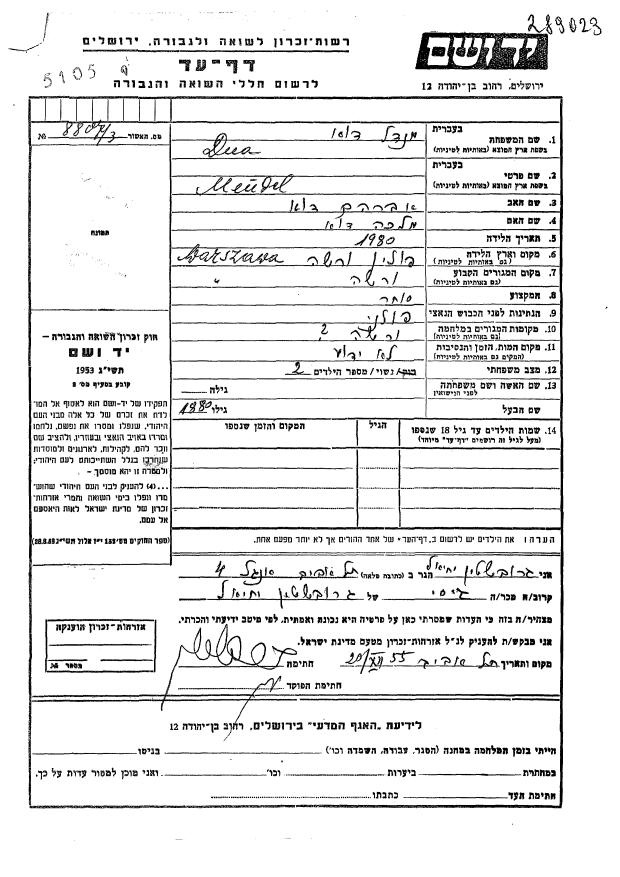 289023
רשות-זכרון לשואה ולגבורה, ירושלים
יד ושם
5105
דף-עד
לרשום חללי השואה והגבורה
ירושלים, רחוב בן-יהודה 12
מס. האשור 8807/3 №
תמונה
חוק זכרון השואה והגבורה –
יד ושם
תשי"ג 1953
קובע בסעיף מס' 2
תפקידו של יד-ושם הוא לאסוף אל המו־
לדת את זכרם של כל אלה מבני העם
היהודי, שנפלו ומסרו את נפשם, נלחמו
ומרדו באויב הנאצי ובעוזריו, ולהציב שם
וזכר להם, לקהילות, לארגונים ולמוסדות
שנחרבו בגלל השתייכותם לעם היהודי;
ולמטרה זו יהא מוסמך –
...(4) להעניק לבני העם היהודי שהוש־
מדו ונפלו בימי השואה והמרי אזרחות־
זכרון של מדינת ישראל לאות היאספם
אל עמם.
1. שם המשפחה
בעברית
מנדל דוא
בשפת ארץ המוצא (באותיות לטיניות)
Dua
2. שם פרטי
בעברית
בשפת ארץ המוצא (באותיות לטיניות)
Mendel
3. שם האב
אברהם דוא
4. שם האם
מלכה דוא
5. תאריך הלידה
1980
6. מקום וארץ הלידה
(גם באותיות לטיניות)
פולין ורשה Warszawa
7. מקום המגורים הקבוע
(גם באותיות לטיניות)
ורשה "
8. המקצוע
סוחר
9. הנתינות לפני הכבוש הנאצי
פולני
10. מקומות המגורים במלחמה
(גם באותיות לטיניות)
ורשה ?
11. מקום המות, הזמן והנסיבות
(המקום גם באותיות לטיניות)
לא ידוע
12. מצב משפחתי
נשוי/ מספר הילדים 2
13. שם האשה ושם משפחתה
לפני הנישואין
גילה
שם הבעל
גילו 1880
14. שמות הילדים עד גיל 18 שנספו
(מעל לגיל זה רושמים "דף-עד" מיוחד)
הגיל
המקום והזמן שנספו
הערה: את הילדים יש לרשום ב"דף-העד" של אחד ההורים אך לא יותר מפעם אחת.
אני גרובשטיין יחיאל הגר ב (כתובת מלאה) תל אביב 4
קרוב/ה מכר/ה גיסי של גרובשטיין יחיאל
מצהיר/ה בזה כי העדות שמסרתי כאן על פרטיה היא נכונה ואמתית, לפי מיטב ידיעתי והכרתי.
אני מבקש/ת להעניק לנ"ל אזרחות-זכרון מטעם מדינת ישראל.
מקום ותאריך תל אביב 20/XII 55 חתימה
חתימת הפוקד
אזרחות-זכרון הוענקה
מספר №
לידיעת "האגף המדעי" בירושלים, רחוב בן-יהודה 12
הייתי בזמן המלחמה במחנה (הסגר, עבודה, השמדה וכו') בגיטו
במחתרת ביערות וכו' ואני מוכן למסור עדות על כך.
חתימת העד כתבתו